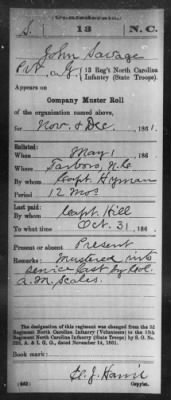 (Confederate.)
S. 13 N.C.
John Savage
Pvt, Co. G, 13 Reg't North Carolina
Infantry (State Troops).
Appears on
Company Muster Roll
of the organization named above,
for Nov. & Dec., 1861.
Enlisted:
When May 1, 186
Where Tarboro, N.C.
By whom Capt. Hyman
Period 12 Mos
Last paid:
By whom Capt. Hill
To what time Oct. 31, 186
Present or absent Present
Remarks: Mustered into
service last by Col.
A. M. Scales.
The designation of this regiment was changed from the 3d
Regiment North Carolina Infantry (Volunteers) to the 13th
Regiment North Carolina Infantry (State Troops) by S. O. No.
222, A. & I. G. O., dated November 14, 1861.
Book mark:
(642) Copyist.